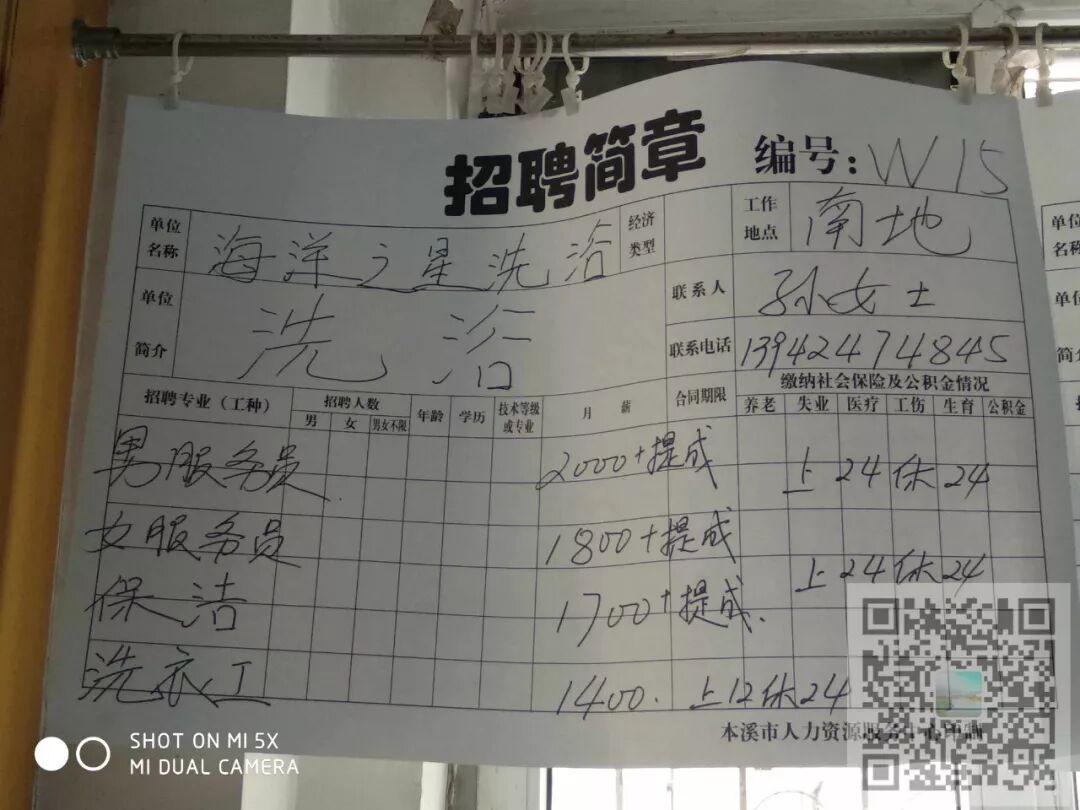 招聘简章
编号：W15
单位名称 海洋之星洗浴 经济类型 工作地点 南地
单位简介 洗浴 联系人 孙女士
联系电话 13942474845
招聘专业（工种） 招聘人数 年龄 学历 技术等级或专业 月薪 合同期限 缴纳社会保险及公积金情况
男 女 男女不限 养老 失业 医疗 工伤 生育 公积金
男服务员. 2000+提成 上24休24
女服务员 1800+提成
上24休24
保洁 1700+提成.
洗衣工 1400. 上12休24
本溪市人力资源服务中心印制
SHOT ON MI 5X
MI DUAL CAMERA
单位名称
单位
简介
招